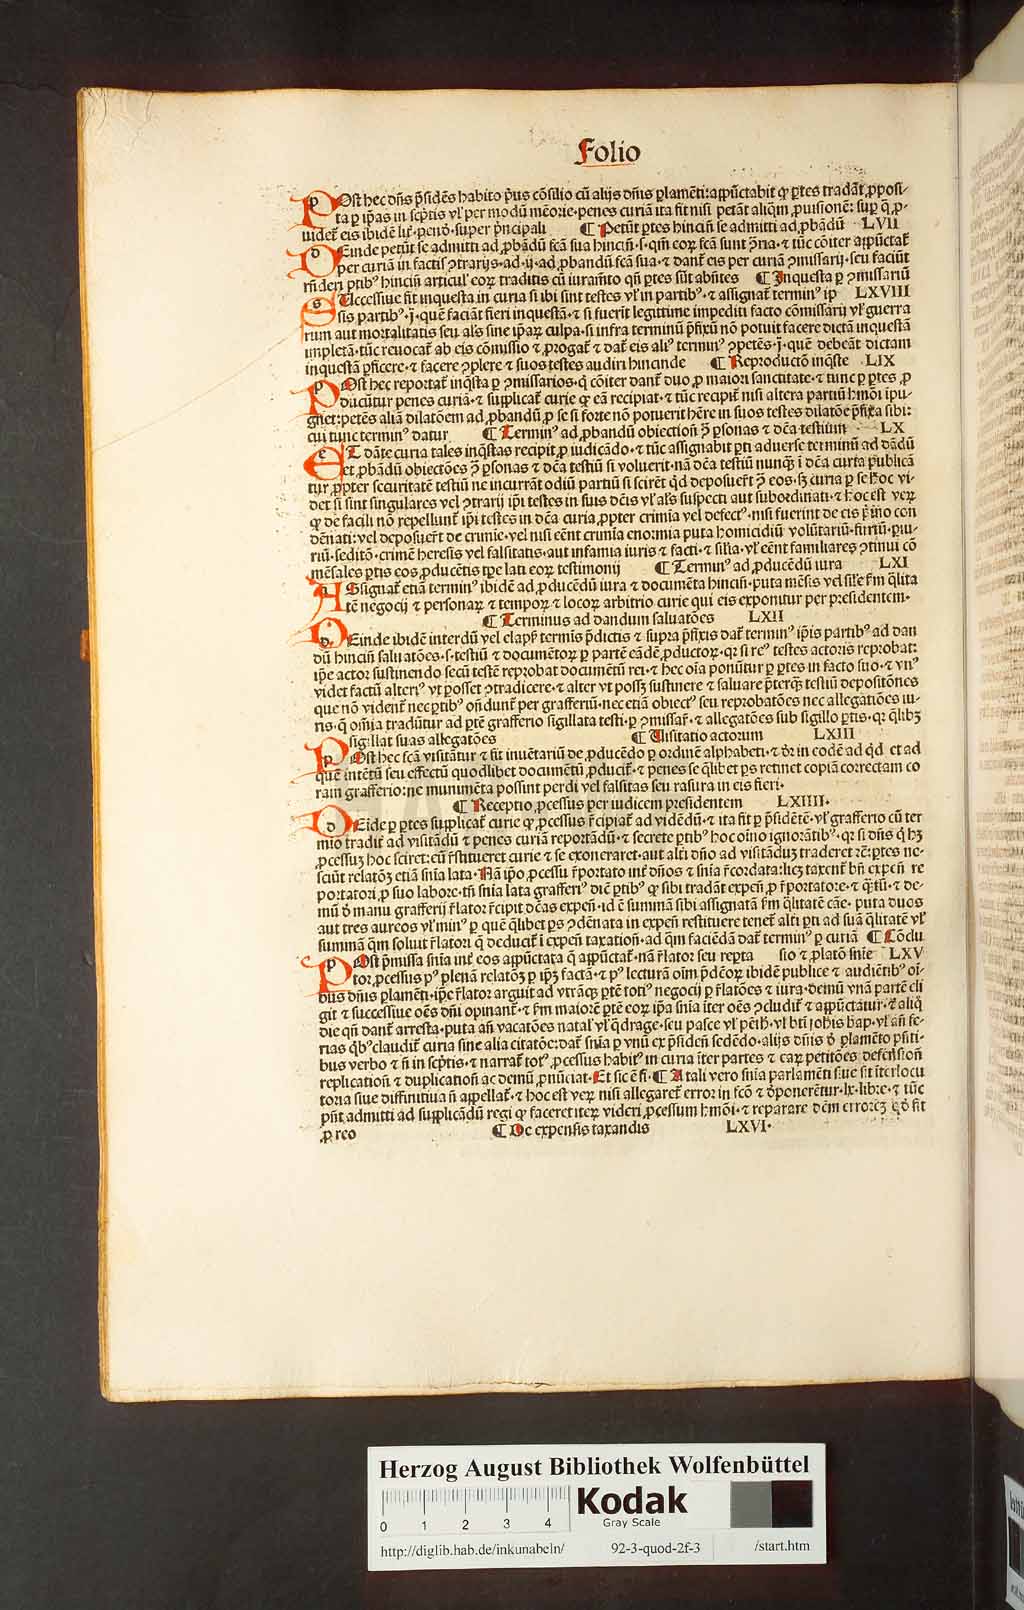 Folio
POst hec dñs p̃sidẽs habito p̃us cõsilio cũ alijs dñis plamẽti: appũctabit ꝙ ptes tradãt ꝓposi-
ta p ip̃as in scp̃tis vľ per modũ mẽorie penes curiã ita sit nisi petãt aliq̃m ꝓuisionẽ: sup q̃ ꝓ-
uidet̃ eis ibidẽ super p̃ncipali ¶ Petũt ptes hincin̄ se admitti ad ꝓbãdũ LVII
DEinde petũt se admitti ad ꝓbãdũ fcã sua hincin̄ s. q̃m eoꝝ fcã sunt ↄ̃ria ⁊ tũc cõiter appũctat̃
per curiã in factis ↄtrarijs ad ꝓbandũ fcã sua ⁊ dant̃ eis per curiã ↄmissarij seu faciũt
rñderi ptibꝰ hincin̄ articuľ eoꝝ traditis cũ iuram̃to qñ ptes sũt abñtes ¶ Inquesta p ↄmissariũ
SUccessiue fit inquesta in curia si ibi sint testes vľ in partibꝰ ⁊ assignat̃ terminꝰ ip LXVIII
sis partibꝰ quẽ faciãt fieri inquestã ⁊ si fuerit legittime impediti facto cõmissarij vľ guerra
rum aut mortalitatis seu als̃ sine ip̃aꝝ culpa si infra terminũ p̃fixũ nõ potuit facere dictã inquestã
impletã tũc reuocat̃ ab eis cõmissio ⁊ ꝓrogat̃ ⁊ dat̃ eis aliꝰ terminꝰ ↄpetẽs quẽ debeãt dictam
inquestã pficere ⁊ facere ↄplere ⁊ suos testes audiri hincinde ¶ Reproductõ inq̃ste LIX
POst hec reportat̃ inq̃sta p ↄmissarios q̃ cõiter dant̃ duo ꝓ maiori sanctitate ⁊ tunc p ptes ꝓ
ducũtur penes curiã ⁊ supplicat̃ curie ꝙ eã recipiat ⁊ tũc recipit̃ nisi altera partiũ hm̃õi ipu-
gnet: petẽs aliã dilatõem ad ꝓbandũ ꝓ se si forte nõ potuerit hẽre in suos testes dilatõe p̃fixa sibi:
cui tunc terminꝰ datur ¶ Terminꝰ ad ꝓbandũ obiectiõn ↄ̃ psonas ⁊ dc̃a testium LX
ET dãte curia tales inq̃stas recipit ꝓ iudicãdo ⁊ tũc assignabit pti aduerse terminũ ad dãdũ
et ꝓbãdũ obiectões ↄ̃ psonas ⁊ dc̃a testiũ si voluerit nã dc̃a testiũ nunq̃ ĩ dc̃a curia publicã
tur ꝓpter securitatẽ testiũ ne incurrãt odiũ partiũ si scirẽt q̃d deposuer̃t ↄ̃ eos sꝫ curia p se hoc vi-
det si sint singulares vel ↄtrarij ip̃i testes in suis dc̃is vľ als̃ suspecti aut subordinati ⁊ hoc est veꝝ
ꝙ de facili nõ repellunt̃ ip̃i testes in dc̃a curia ꝓpter crimĩa vel defectꝰ nisi fuerint de eis p̃mo con
dẽnati: vel deposuer̃t de crimĩe vel nisi eẽnt crimĩa enormia puta homicidiũ volũtariũ furtũ piu-
riũ seditõ crimẽ heresis vel falsitatis aut infamia iuris ⁊ facti ⁊ sil̃ia vľ eẽnt familiares ↄtinui cõ
mẽsales ptis eos ꝓducẽtis tp̃e lati eoꝝ testimonij ¶ Terminꝰ ad ꝓducẽdũ iura LXI
ASsignat̃ etiã terminꝰ ibidẽ ad ꝓducẽdũ iura ⁊ documẽta hincin̄ puta mẽsis vel sil̃e fm̃ q̃lita
tẽ negocij ⁊ personaꝝ ⁊ tempoꝝ ⁊ locoꝝ arbitrio curie qui eis exponitur per presidentem.
¶ Terminus ad dandum saluatões LXII
DEinde ibidẽ interdũ vel elapsꝰ termĩs p̃dictis ⁊ supra p̃fixis dat̃ terminꝰ ip̃is partibꝰ ad dan
dũ hincin̄ saluatões s. testiũ ⁊ documẽtoꝝ p partẽ eãdẽ ꝓductoꝝ qꝛ si reꝰ testes actoris reprobat:
ip̃e actor sustinendo secũ testẽ reprobat documẽtũ rei ⁊ hec oĩa ponũtur p ptes in facto suo ⁊ vnꝰ
videt factũ alteriꝰ vt posset ↄtradicere ⁊ alter vt possꝫ sustinere ⁊ saluare p̃terq̃ testiũ depositõnes
que nõ vident̃ nec ptibꝰ oñdunt̃ per grafferiũ nec etiã obiectꝰ seu reprobatões nec allegatiões iu-
ris q̃ om̃ia tradũtur ad ptẽ grafferio sigillata testi p ↄmissar̃ ⁊ allegatões sub sigillo ptis qꝛ q̃libꝫ
sigillat suas allegatões ¶ Uisitatio actorum LXIII
POst hec fcã visitãtur ⁊ fit inuẽtariũ de ꝓducẽdo p ordinẽ alphabeti ⁊ in eodẽ ad q̃d et ad
quẽ intẽtũ seu effectũ quodlibet documẽtũ ꝓducit̃ ⁊ penes se q̃libet ps retinet copiã correctam co
ram grafferio: ne munimẽta possint perdi vel falsitas seu rasura in eis fieri.
¶ Receptio ꝓcessus per iudicem presidentem LXIIII.
DEide p ptes supplicat̃ curie ꝙ ꝓcessus r̃cipiat̃ ad vidẽdũ ⁊ ita fit p p̃sidẽtẽ vľ grafferio cũ ter
mio tradit̃ ad visitãdũ ⁊ penes curiã reportãdũ ⁊ secrete ptibꝰ hoc oĩno ignorãtibꝰ qꝛ si dñs q̃ hꝫ
ꝓcessuꝫ hoc sciret: eũ r̃stitueret curie ⁊ se exoneraret aut alt̃i dño ad visitãduꝫ traderet ⁊c̃: ptes ne-
sciũt relatõꝫ etiã snĩa lata Nã ip̃o ꝓcessu r̃portato int̃ dños ⁊ snĩa r̃cordata: lꝫ taxent̃ bñ expeñ re
portatori ꝓ suo labore tñ snĩa lata grafferiꝰ dic̃ ptibꝰ ꝙ sibi tradãt expeñ ꝓ r̃portatore ⁊ q̃tũ ⁊ de-
mũ manu grafferij r̃lator r̃cipit dc̃as expeñ id ẽ summã sibi assignatã fm̃ q̃litatẽ cãe puta duos
aut tres aureos vľ minꝰ p quẽ q̃libet ps ↄdẽnata in expeñ restituere tenet̃ alt̃i pti ad suã q̃litatẽ vľ
summã q̃m soluit r̃latori q̃ deducit̃ ĩ expeñ taxatioñ ad q̃m faciẽdã dat̃ terminꝰ p curiã ¶ Cõclu
POst p̃missa snĩa int̃ eos appũctata q̃ appũctat̃ nã r̃lator seu repta sio ⁊ platõ snĩe LXV
tor ꝓcessus pꝰ plenã relatõꝫ p ip̃ꝫ factã ⁊ pꝰ lecturã oĩm p̃deõꝝ ibidẽ publice ⁊ audiẽtibꝰ oĩ-
bus dñis plamẽti ip̃e r̃lator arguit ad vtrãqꝫ ptẽ totiꝰ negocij p r̃latões ⁊ iura demũ vnã partẽ eli
git ⁊ successiue oẽs dñi opinant̃ ⁊ fm̃ maiorẽ ptẽ eoꝝ ip̃a snĩa iter oẽs ↄcludit̃ ⁊ appũctatur ⁊ aliq̃
die qñ dant̃ arresta puta añ vacatões nataľ vľ q̃drage seu pasce vľ pẽth vľ bt̃i joh̃is bap. vľ añ fe-
rias q̃bꝰ claudit̃ curia sine alia citatõe: dat̃ snĩa p vnũ ex p̃sideñ sedẽdo alijs dñis plamẽto p̃siti-
bus verbo ⁊ ñ in scp̃tis ⁊ narrat̃ totꝰ ꝓcessus habitꝰ in curia iter partes ⁊ eaꝝ petitões defensioñ
replicatioñ ⁊ duplicatioñ ac demũ ꝓnũciat Et sic ẽ fi ¶ A tali vero snĩa parlamẽti siue sit iterlocu
toria siue diffinitiua ñ appellat̃ ⁊ hoc est veꝝ nisi allegaret̃ error in fcõ ⁊ ꝓponerẽtur lx libre ⁊ tũc
pñt admitti ad supplicãdũ regi ꝙ faceret iteꝝ videri ꝓcessum hm̃õi ⁊ reparare dc̃m errorẽꝫ fit
ꝓ reo ¶ De expensis taxandis LXVI.
Herzog August Bibliothek Wolfenbüttel
0 1 2 3 4
Kodak
Gray Scale
http://diglib.hab.de/inkunabeln/ 92-3-quod-2f-3 /start.htm